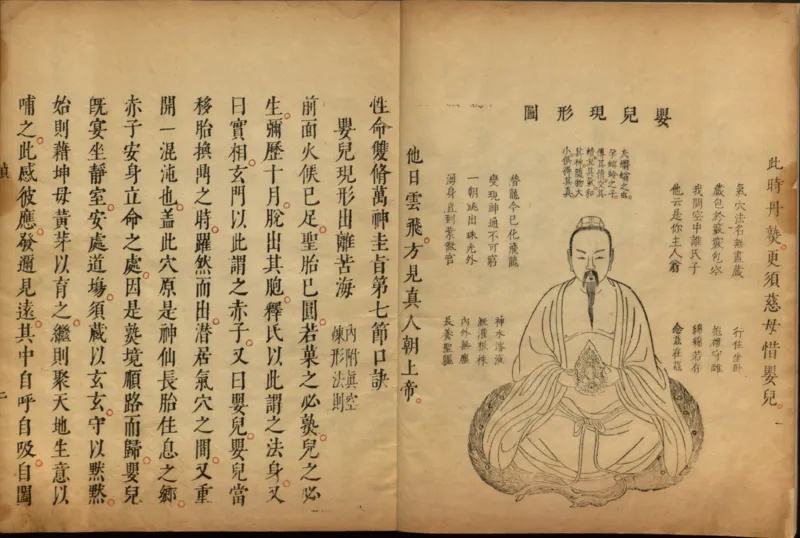 此時丹熟。更須慈母惜嬰兒。
嬰兒現形圖
氣穴法名無盡藏
藏包於竅竅包空
我問空中誰氏子
他云是你主人翁
行住坐卧
抱雄守雌
綿綿若存
念茲在茲
夫蜾蠃之蟲
孕螟蛉之子
傳其情交其
精混其氣和
其神隨物大
小俱得其真
昔龍今已化飛龍
變現神通不可窮
一朝跳出珠光外
湧身直到紫微宮
神水溶液
溉灌根株
內外無塵
長養聖軀
他日雲飛。方見真人朝上帝。
性命雙脩萬神圭旨第七節口訣
嬰兒現形出離苦海 內附真空鍊形法則
前面火候已足。聖胎已圓。若菓之必熟。兒之必
生。彌歷十月。脫出其胞。釋氏以此謂之法身。又
曰實相。玄門以此謂之赤子。又曰嬰兒。嬰兒當
移胎換鼎之時。躍然而出。潛居氣穴之間。又重
開一混沌也。蓋此穴原是神仙長胎住息之鄉。
赤子安身立命之處。因是熟境順路而歸。嬰兒
既宴坐靜室。安處道場。須藏以玄玄。守以默默。
始則藉坤母黃芽以育之。繼則聚天地生意以
哺之。此感彼應。發邇見遠。其中自呼自吸自闔